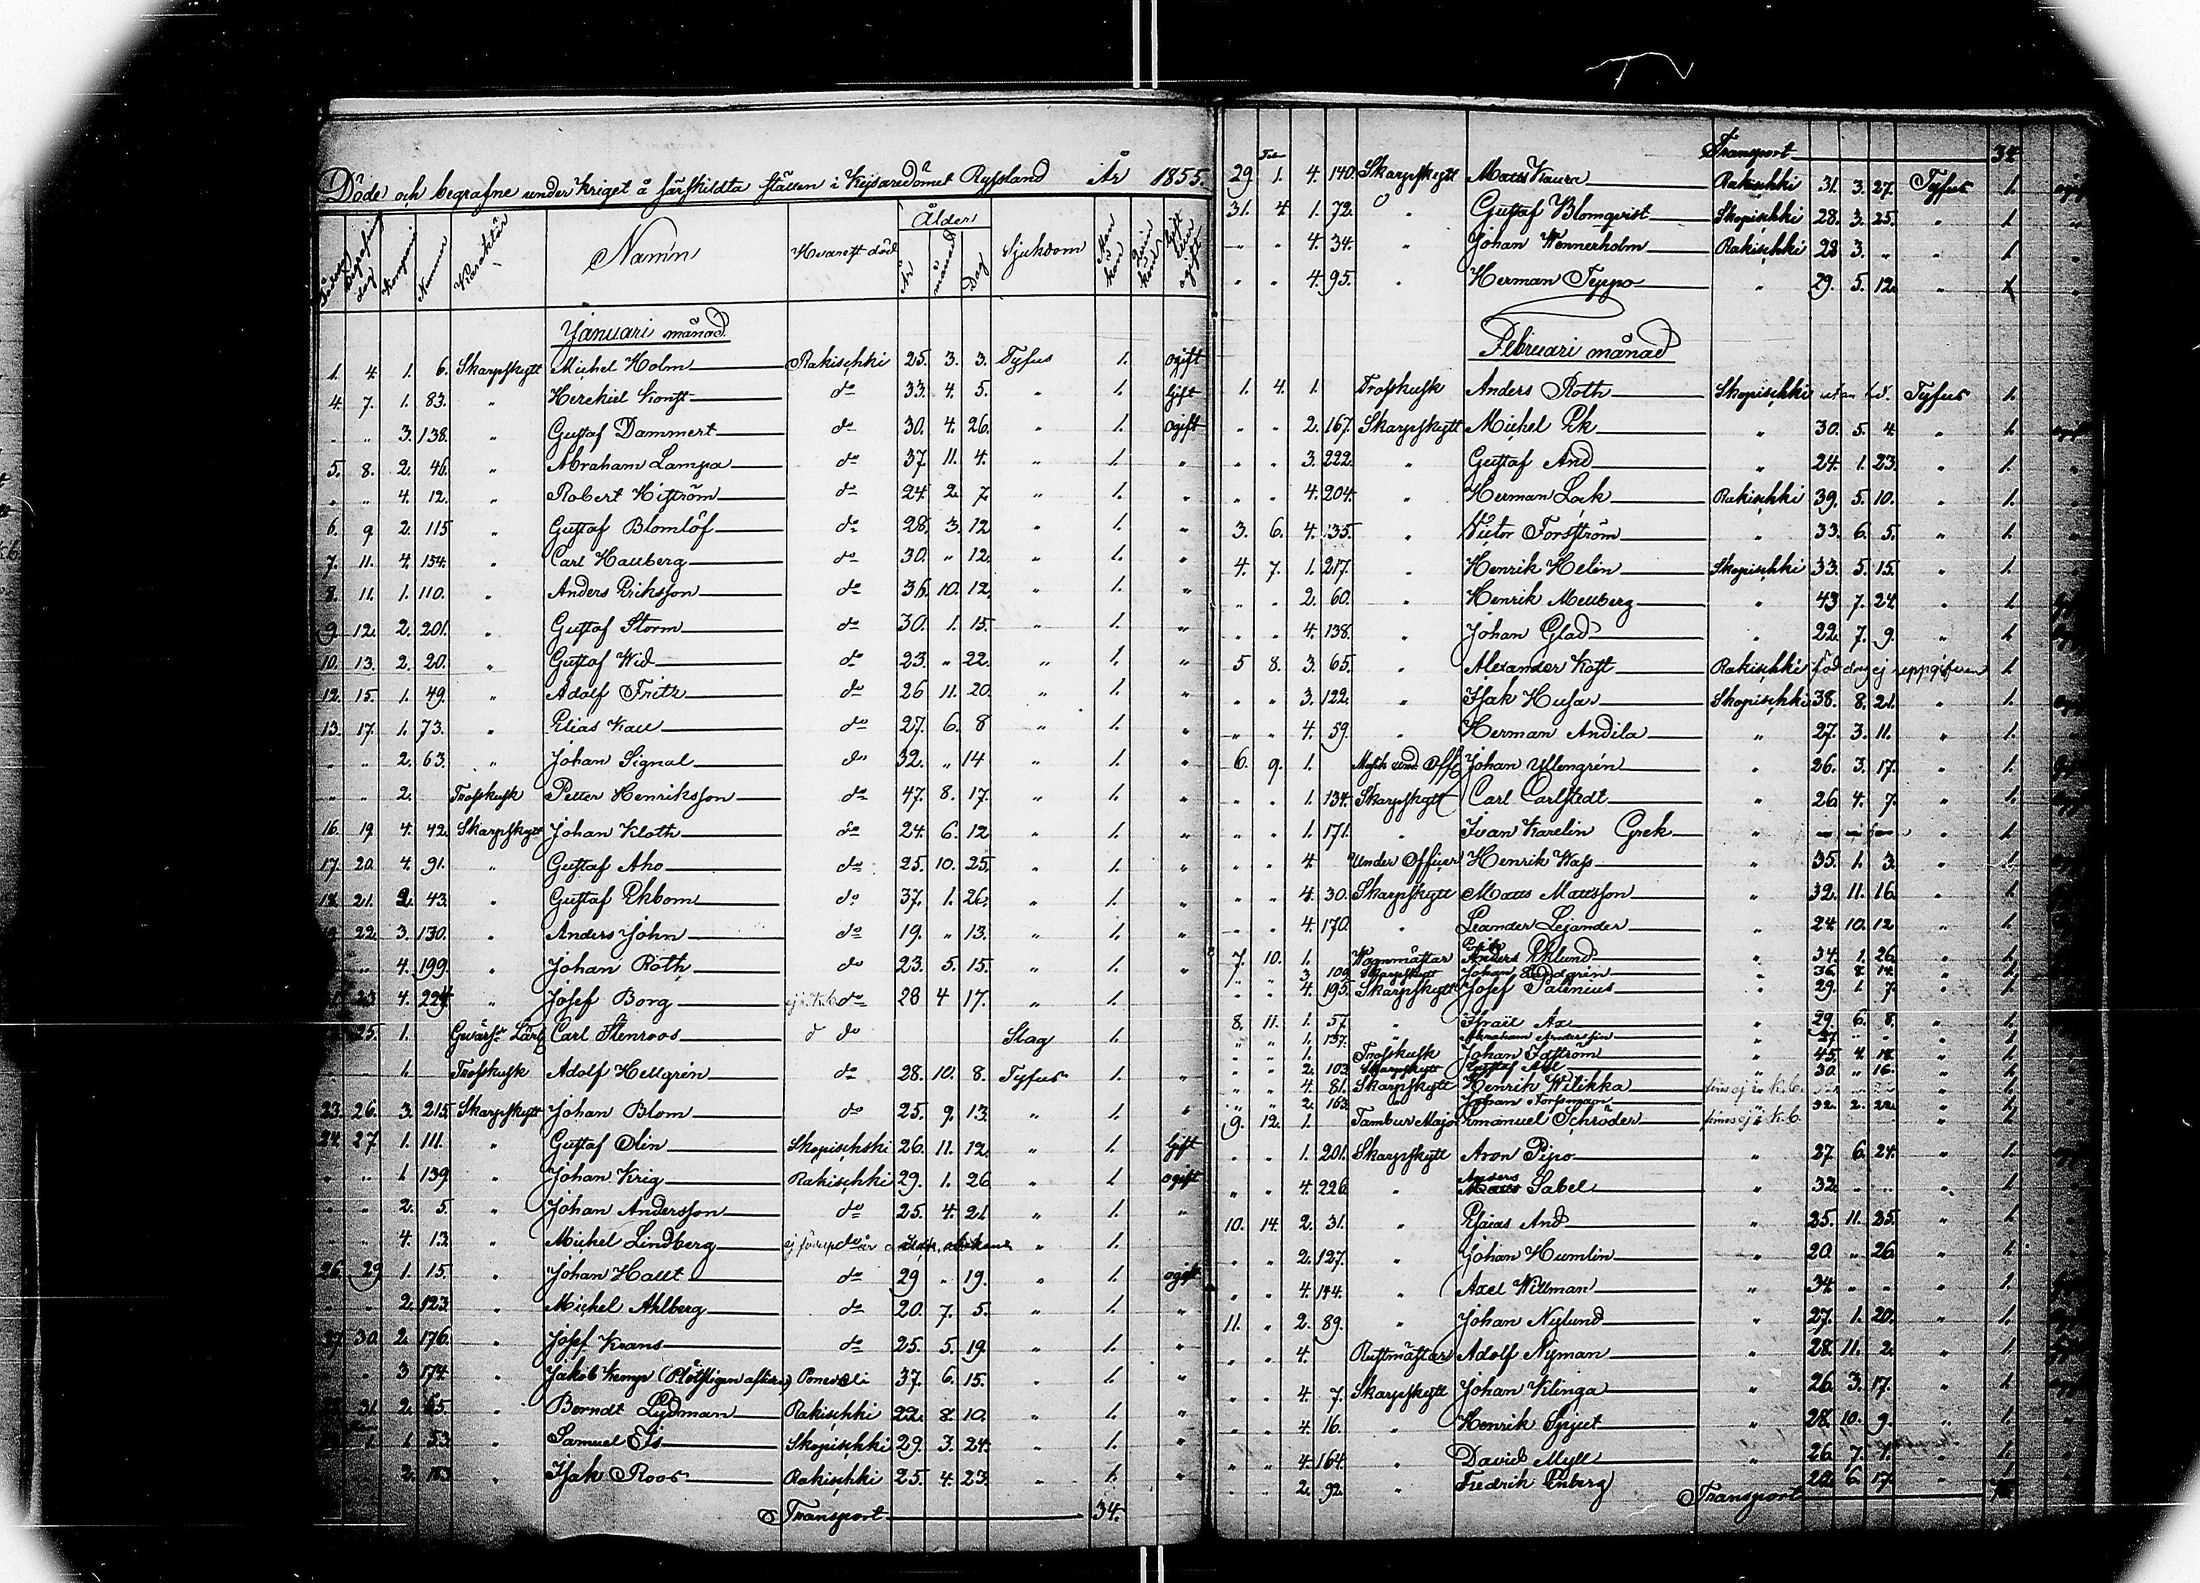 Döde och begrafne under kriget å särskildta ställen i Kejsaredömet Ryssland År 1855.
Kompani Nummer Karaktär Namn Hvarest död Ålder År månad Dag Sjukdom Man kön Qvin kön Gift eller ogift
Januari månad
1. 4. 1. 6. Skarpskytt Michel Holm Rakischki 25. 3. 3. Tyfus 1. ogift
4. 7. 1. 83. " Hezekiel Konst do 33. 4. 5. " 1. Gift
" " 3. 138. " Gustaf Dammert do 30. 4. 26. " 1. Ogift
5. 8. 2. 46. " Abraham Lampa do 37. 11. 4. " 1. "
" " 4. 12. " Robert Hiström do 24. 2. 7. " 1. "
6. 9. 2. 115 " Gustaf Blomlöf do 28. 3. 12 " 1. "
7. 11. 4. 154. " Carl Hallberg do 30. " 12. " 1. "
8. 11. 1. 110. " Anders Eriksson do 36. 10. 12. " 1. "
9 12. 2. 201. " Gustaf Storm do 30. 1. 15. " 1. "
10. 13. 2. 20. " Gustaf Wid do 23. " 22. " 1. "
12. 15. 1. 49. " Adolf Fritz do 26 11. 20. " 1. "
13. 17. 1. 73. " Elias Kall do 27. 6. 8 " 1. "
" " 2. 63. " Johan Signal do 32. " 14 " 1. "
" " 2. Trosskusk Petter Henriksson do 47. 8. 17. " 1. "
16. 19. 4. 42. Skarpskytt Johan Kloth do 24. 6. 12 " 1. "
17. 20. 4. 91. " Gustaf Aho do 25. 10. 25. " 1. "
21. 2. 43. " Gustaf Ekbom do 37. 1. 26. " 1. "
22. 3. 130. " Anders John do 19. " 13. " 1. "
" 4. 199. " Johan Roth do 23. 5. 15. " 1. "
23 4. 224 " Josef Borg do 28 4 17. " 1.
25. 1. Carl Stenroos do Slag 1.
" 1. Trosskusk Adolf Hellgrén do 28. 10. 8. Tyfus 1. "
23. 26. 3. 215. Skarpskytt Johan Blom do 25. 9. 13. " 1. "
24. 27 1. 111. " Gustaf Olin Skopischski 26. 11. 12. " 1. Gift
" " 1. 139. " Johan Krig Rakischki 29. 1. 26 " 1 ogift
" " 2. 5. " Johan Andersson do 25. 4. 21 " 1. "
" " 4. 13. " Michel Lindberg do " 1.
26. 29 1. 15. " Johan Hallt do 29 " 19. " 1. ogift
" " 2. 123. " Michel Ahlberg do 20. 7. 5. " 1. "
27. 30. 2. 176. " Josef Krans do 25. 5. 19. " 1. "
" 3 174. " Jakob Kemp 37. 6. 15. " 1. "
31. 2. 65. " Berndt Lydman Rakischki 22. 8. 10. " 1. "
1. 1. 53. " Samuel Es Skopischki 29. 3. 24. " 1. "
2. " Isak Roos Rakischki 25. 4. 23. " 1. "
Transport 34.
Transport 34
29. 1. 4. 140. Skarpskytt Matts Kaura Rakischki 31. 3. 27. Tyfus 1.
31. 4. 1. 72. " Gustaf Blomqvist Skopischki 28. 3. 25. " 1. "
" " 4. 34. " Johan Wennerholm Rakischki 22 3. " " 1. "
" " 4. 95. " Herman Teppo " 29. 5. 12. " 1 "
Februari månad
1. 4. 1. Trosskusk Anders Roth Skopischki Tyfus 1.
" " 2. 167. Skarpskytt Michel Ek " 30. 5. 4. " 1.
" " 3. 222. " Gustaf And " 24. 1. 23. " 1. "
" " 4. 204. " Herman Lock Rakischki 39. 5. 10. " 1. "
3. 6. 4. 135. " Victor Forsström " 33. 6. 5. " 1. "
4. 7. 1. 217. " Henrik Helin Skopischki 33. 5. 15. " 1. "
" " 2. 60. " Henrik Mellberg " 43 7. 24. " 1.
" " 4. 138. " Johan Glad " 22. 7. 9. " 1.
5 8. 3. 65. " Alexander Kaft Rakischki 1.
" " 3. 122. " Isak Husar Skopischki 38. 8. 21. " 1.
" " 4. 59. " Herman Andila " 27. 3. 11. " 1. "
6. 9. 1. Musik und. Off. Johan Ullengrén " 26. 3. 17. " 1.
" " 1. 134. Skarpskytt Carl Carlstedt " 26 4. 7. " 1.
" " 1. 171. " Ivan Karelin Grek " " 1.
" " 4. Under Officer Henrik Wass " 35. 1. 3. " 1.
" " 4. 30. Skarpskytt Matts Mattsson " 32. 11. 16. " 1.
" " 4. 170. " Leander Lejander " 24 10. 12 " 1.
7. 10. 1. Wagnmästar Anders Eklund " 34. 1. 26. " 1.
" " 3 109 Skarpskytt Johan " 36. 8. 14. " 1.
" " 4. 195. Skarpskytt Josef Palenius " 29. 1. 7. " 1.
8. 11. 1. 57. " Israël Ax " 29. 6. 8. " 1.
" " 1. 137. Abraham Andersson " 27 " " " 1.
" " 1. Trosskusk Johan Idström " 45. " 1.
" " 2. 103 Skarpskytt Gustaf " 30. " 16. " 1.
" " 4. 81. Skarpskytt Henrik Wilikka finns ej i K.b. " 1.
" " 2. 163. Johan Forsman " 32. 2. 22. " 1.
9. 12. 1. Tambur Major Emanuel Schröder finns ej i K.b. " 1.
" " 1. 201. Skarpskytt Aron Pipo " 27 6. 24. " 1.
" " 4. 226. " Anders Sabel " 32. " " " 1.
10. 14. 2. 31. " Esaias And " 25. 11. 25. " 1.
" " 2. 127. " Johan Humlin " 20. " 26. " 1.
" " 4. 144. " Axel Willman " 34. " " " 1.
11. " 2. 89. " Johan Nylund " 27. 1. 20. " 1.
" " 4. Rustmästare Adolf Nyman " 28. 11. 2. " 1.
" " 4. 7. Skarpskytt Johan Klinga " 26. 3. 17. " 1.
" " 4. 16. " Henrik Spjut " 28. 10. 9. " 1.
" " 4. 164. " David Myll " 26. 7. 1. " 1.
" " 2. 92. " Fredrik Enberg 6. 17. " 1.
Transport